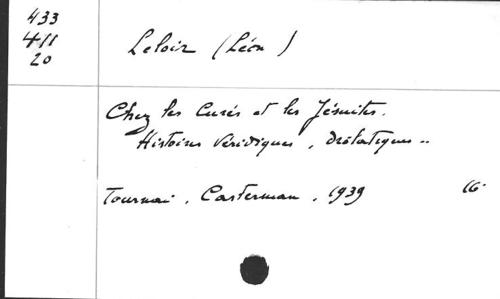 433
411
20
Leloir (Léon)
Chez les Curés et les Jésuites.
Histoires véridiques, drôlatiques..
Tournai, Casterman, 1939 16°